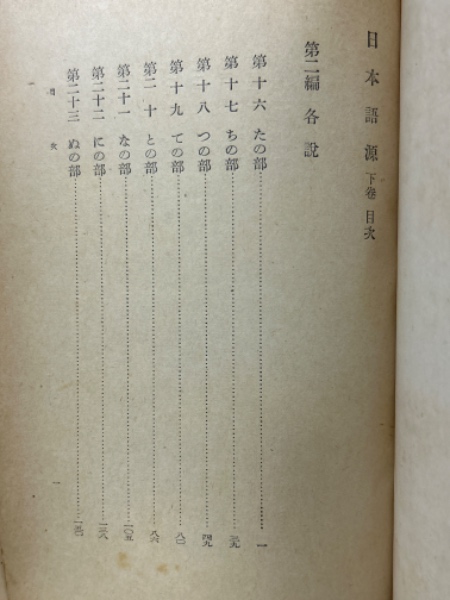 日本語源 下卷 目次
第二編 各說
第十六 たの部 一
第十七 ちの部 三九
第十八 つの部 四九
第十九 ての部 八〇
第二十 との部 八六
第二十一 なの部 一〇五
第二十二 にの部 一三八
第二十三 ぬの部
目次 一